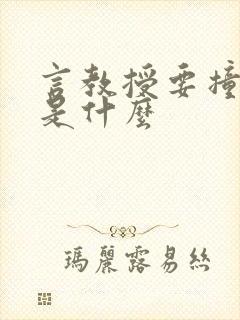 言教授要撞
是什麼
瑪麗露易絲